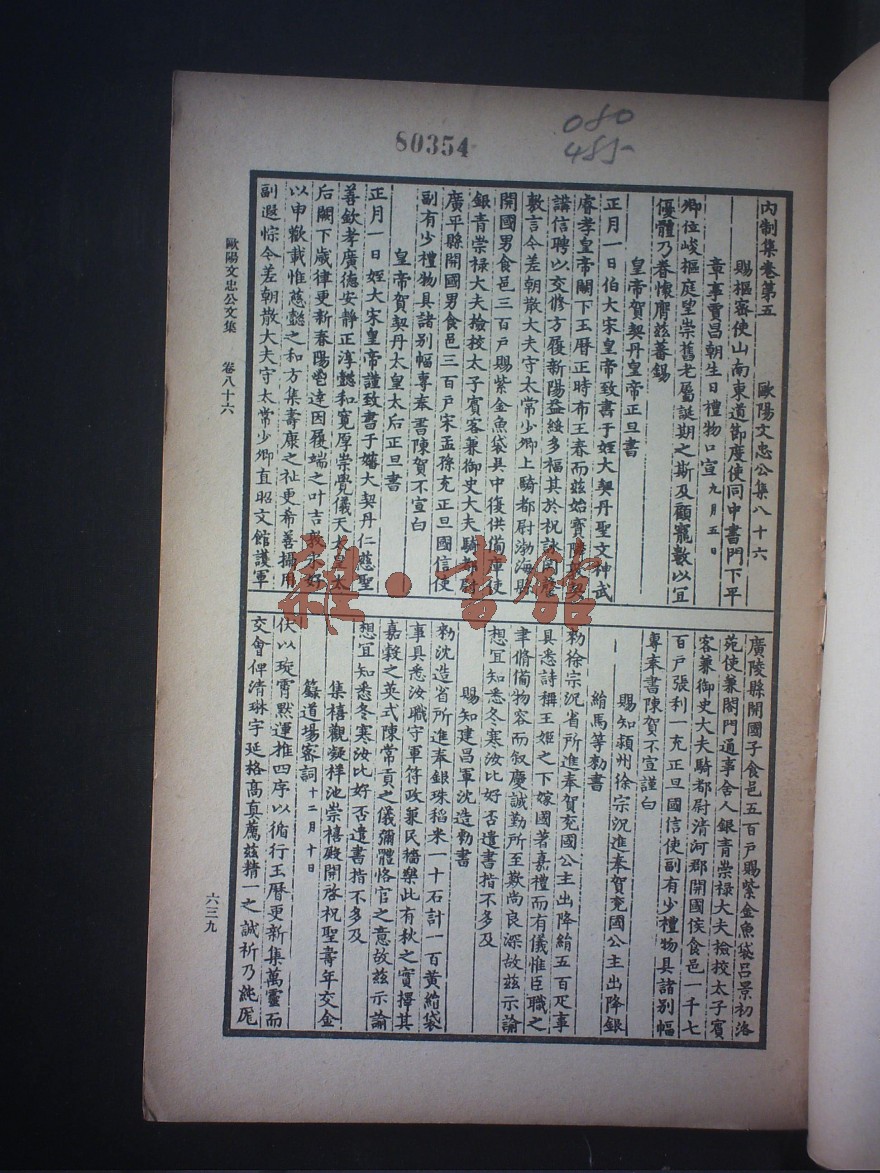 80354
080
485
內制集卷第五　歐陽文忠公集八十六
賜樞密使山南東道節度使同中書門下平
章事賈昌朝生日禮物口宣九月五日
卿位峻樞庭望崇舊老屬誕期之斯及顧寵數以宜
優體乃眷懷膺茲蕃錫
皇帝賀契丹皇帝正旦書
正月一日伯大宋皇帝致書于姪大契丹聖文神武
睿孝皇帝闕下玉曆正時布王春而茲始寶隣敦契
講信聘以交修方履新陽益綏多福其於祝詠
敷言今差朝散大夫守太常少卿上騎都尉渤海縣
開國男食邑三百戶賜紫金魚袋吳中復供備庫使
銀青崇祿大夫檢校太子賓客兼御史大夫騎都尉
廣平縣開國男食邑三百戶宋孟孫充正旦國信使
副有少禮物具諸別幅專奉書陳賀不宣白
皇帝賀契丹太皇太后正旦書
正月一日姪大宋皇帝謹致書于嬸大契丹仁慈聖
善欽孝廣德安靜正淳懿和寬厚崇覺儀天太皇太
后闕下歲律更新春陽達因履端之叶吉敦永好
以申歡載惟慈懿之和方集壽康之祉更希善攝用
副遐悰今差朝散大夫守太常少卿直昭文館護軍
廣陵縣開國子食邑五百戶賜紫金魚袋呂景初洛
苑使兼閤門通事舍人銀青崇祿大夫檢校太子賓
客兼御史大夫騎都尉清河郡開國侯食邑一千七
百戶張利一充正旦國信使副有少禮物具諸別幅
專奉書陳賀不宣謹白
賜知潁州徐宗況進奉賀兗國公主出降銀
絹馬等勑書
勑徐宗況省所進奉賀兗國公主出降絹五百疋事
具悉詩稱王姬之下嫁國著嘉禮而有儀惟臣職之
聿脩備物容而叙慶誠勤所至歎尚良深故茲示諭
想宜知悉冬寒汝比好否遣書指不多及
賜知建昌軍沈造勑書
勑沈造省所進奉銀珠稻米一十石計一百黃絹袋
事具悉汝職守軍符政兼民穡樂此有秋之實擇其
嘉穀之英式陳常貢之儀彌體恪官之意故茲示諭
想宜知悉冬寒汝比好否遣書指不多及
集禧觀凝祥池崇禧殿開啓祝聖壽年交金
籙道場密詞十二月十日
伏以琁霄默運推四序以循行玉曆更新集萬靈而
交會俾清琳宇延格高真薦茲精一之誠祈乃純厖
歐陽文忠公文集　卷八十六
六三九
雜·書館